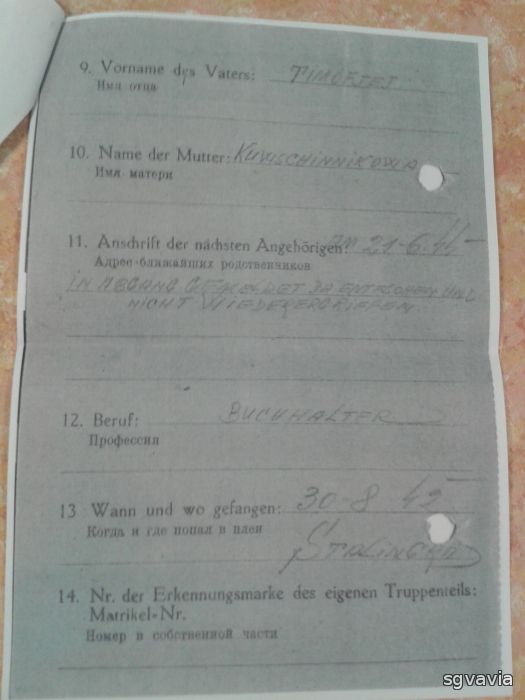 9. Vorname des Vaters: TIMOFEJ
Имя отца
10. Name der Mutter: KUWSCHINNIKOWA
Имя матери
11. Anschrift der nächsten Angehörigen: AM 21-6.44
Адрес ближайших родственников
IN ABGANG GEMELDET DA ENTFLOHEN UND
NICHT WIEDERERGRIFFEN
12. Beruf: BUCHHALTER
Профессия
13 Wann und wo gefangen: 30-8 42
Когда и где попал в плен
STALINGRAD
14. Nr. der Erkennungsmarke des eigenen Truppenteils:
Matrikel-Nr.
Номер в собственной части
sgvavia